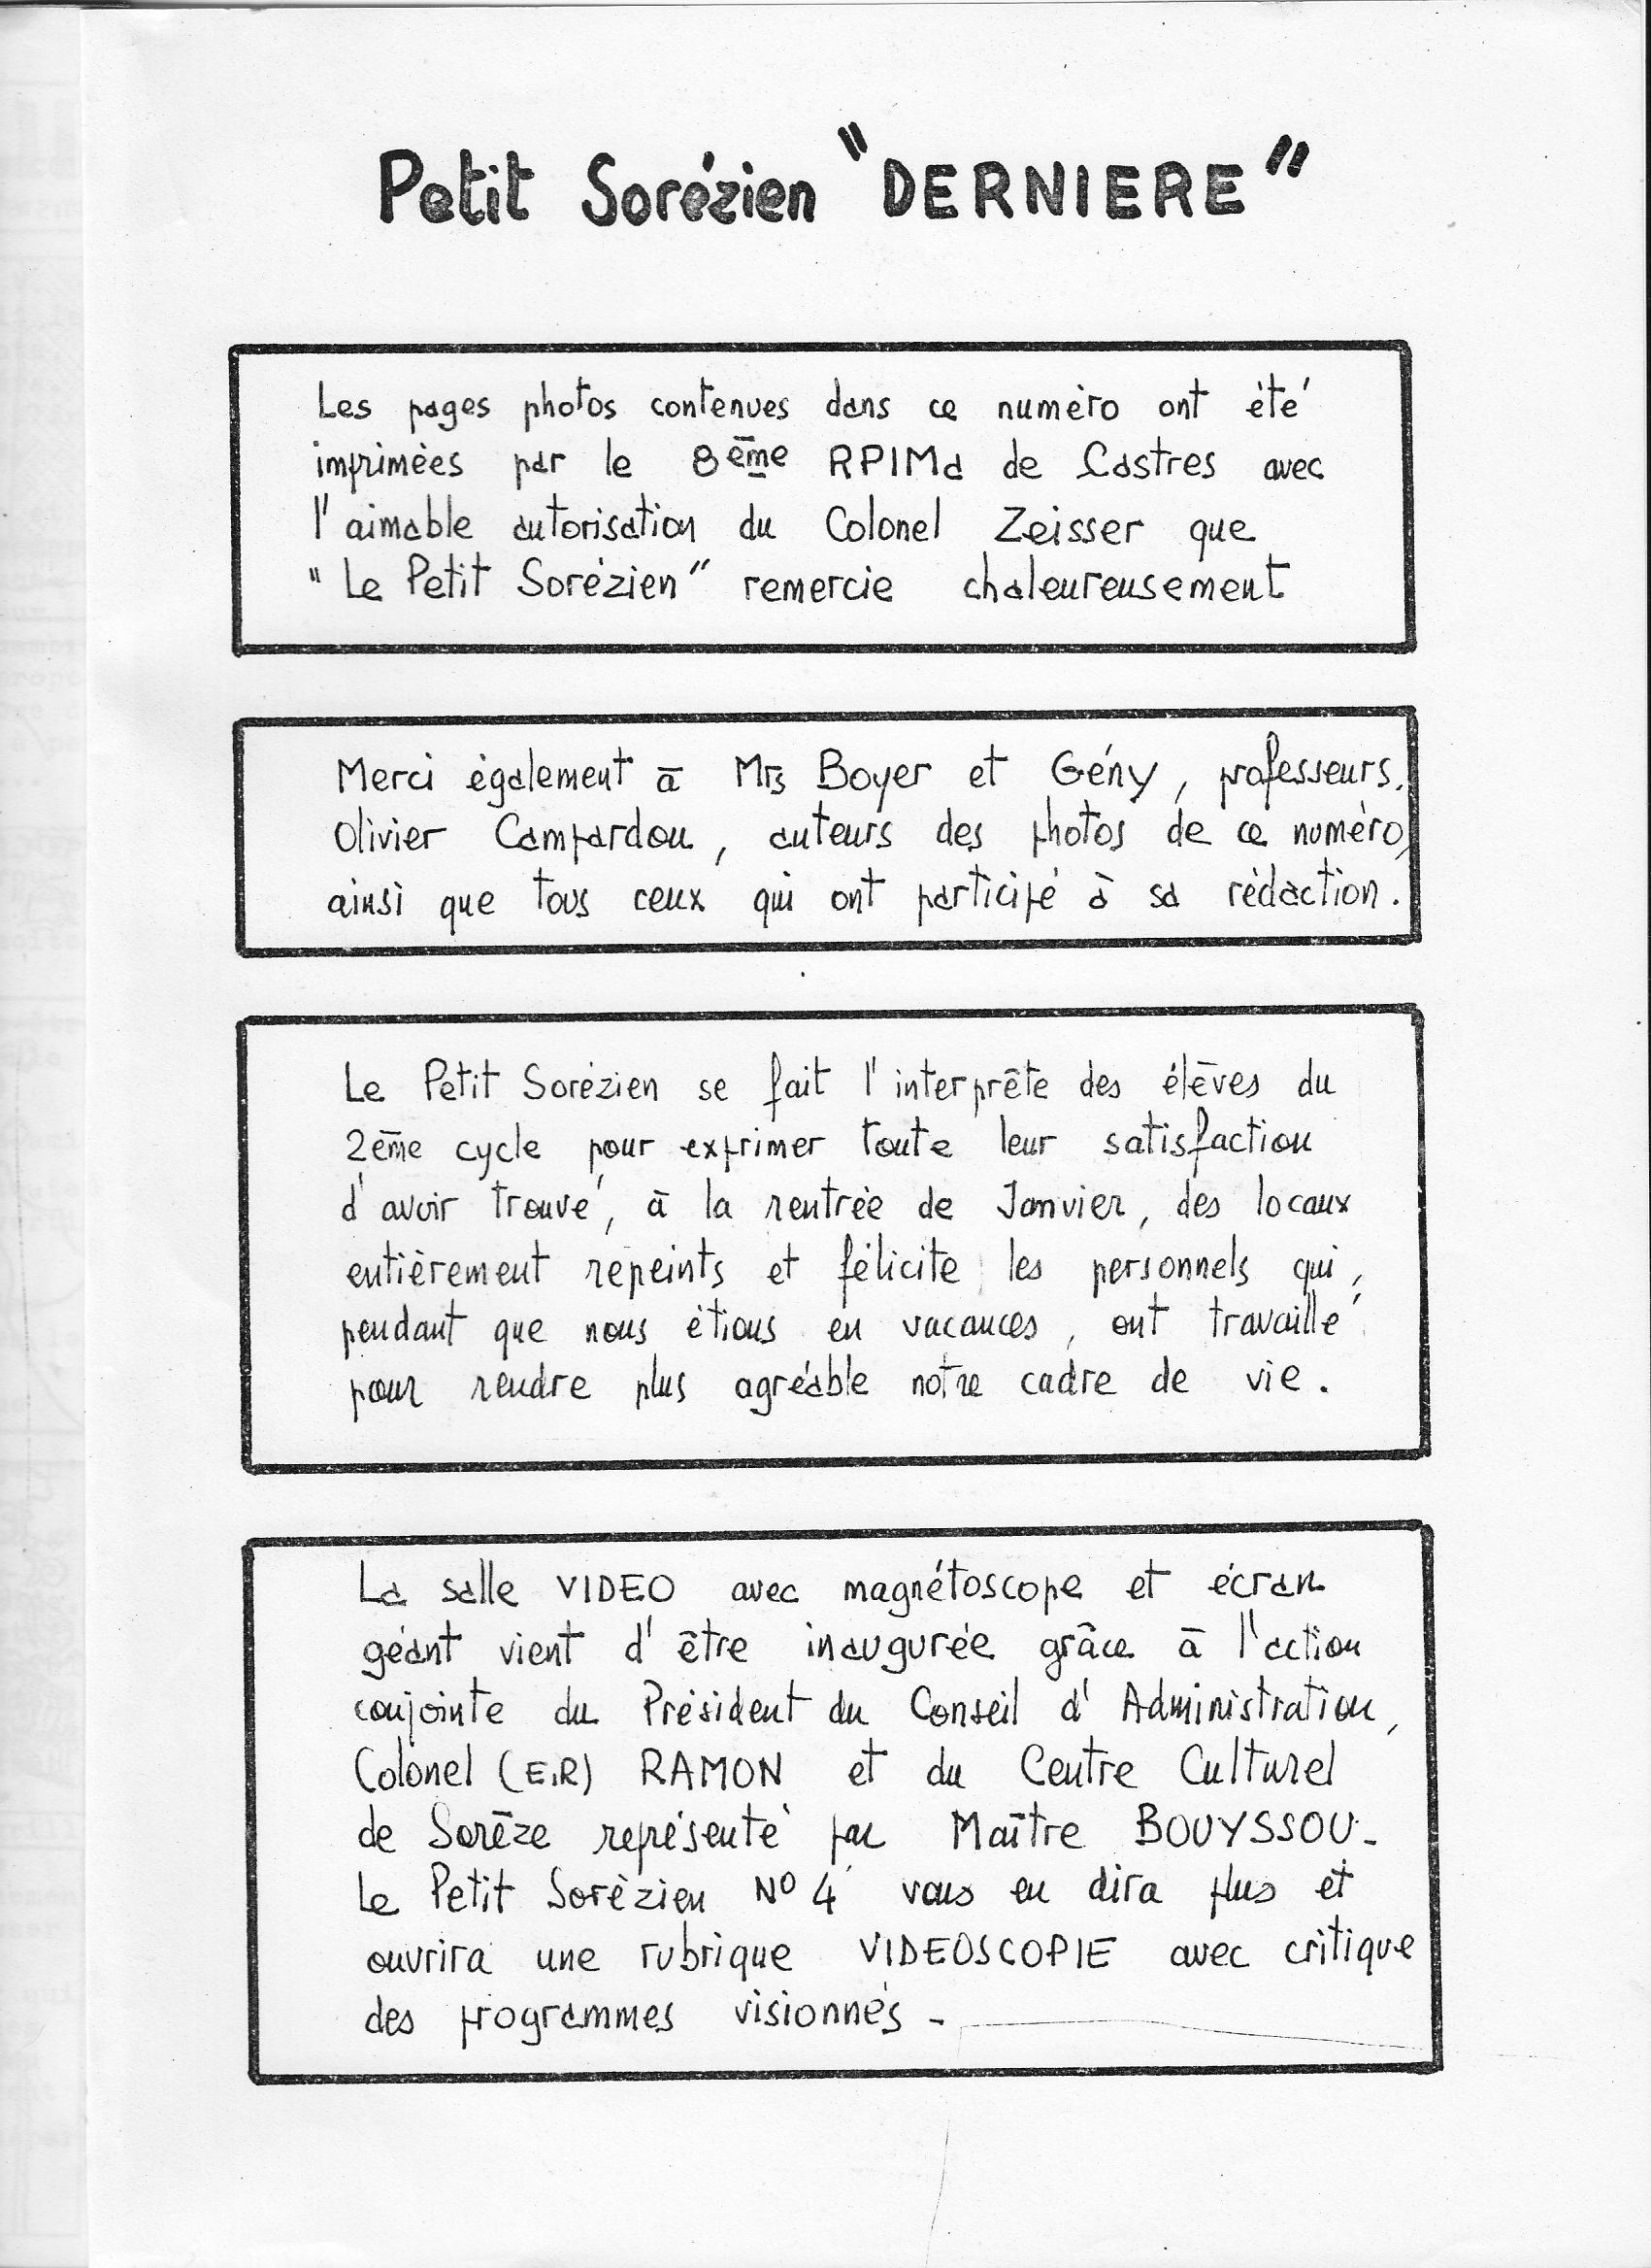 Petit Sorézien "DERNIERE"
Les pages photos contenues dans ce numéro ont été
imprimées par le 8ème RPIMa de Castres avec
l'aimable autorisation du Colonel Zeisser que
"Le Petit Sorézien" remercie chaleureusement
Merci également à Mrs Boyer et Gény, professeurs,
Olivier Campardou, auteurs des photos de ce numéro,
ainsi que tous ceux qui ont participé à sa rédaction.
Le Petit Sorézien se fait l'interprête des élèves du
2ème cycle pour exprimer toute leur satisfaction
d'avoir trouvé, à la rentrée de Janvier, des locaux
entièrement repeints et félicite les personnels qui,
pendant que nous étions en vacances, ont travaillé
pour rendre plus agréable notre cadre de vie.
La salle VIDEO avec magnétoscope et écran
géant vient d'être inaugurée grâce à l'action
conjointe du Président du Conseil d'Administration,
Colonel (E.R) RAMON et du Centre Culturel
de Sorèze représenté par Maître BOUYSSOU-
Le Petit Sorézien N° 4 vous en dira plus et
ouvrira une rubrique VIDEOSCOPIE avec critique
des programmes visionnés -